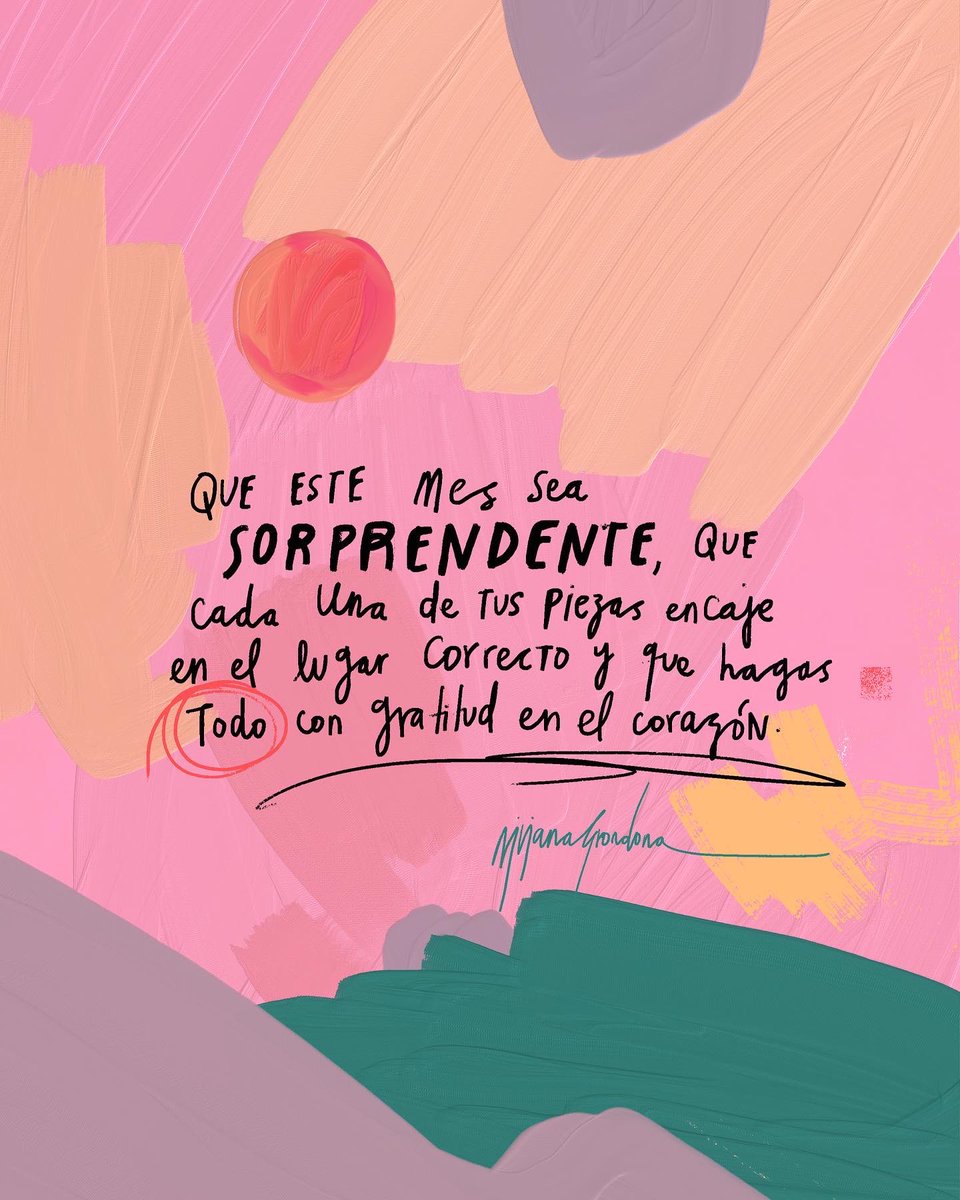 QUE ESTE mes sea
SORPRENDENTE, QUE
cada una de tus piezas encaje
en el lugar correcto y que hagas
Todo con gratitud en el corazón.